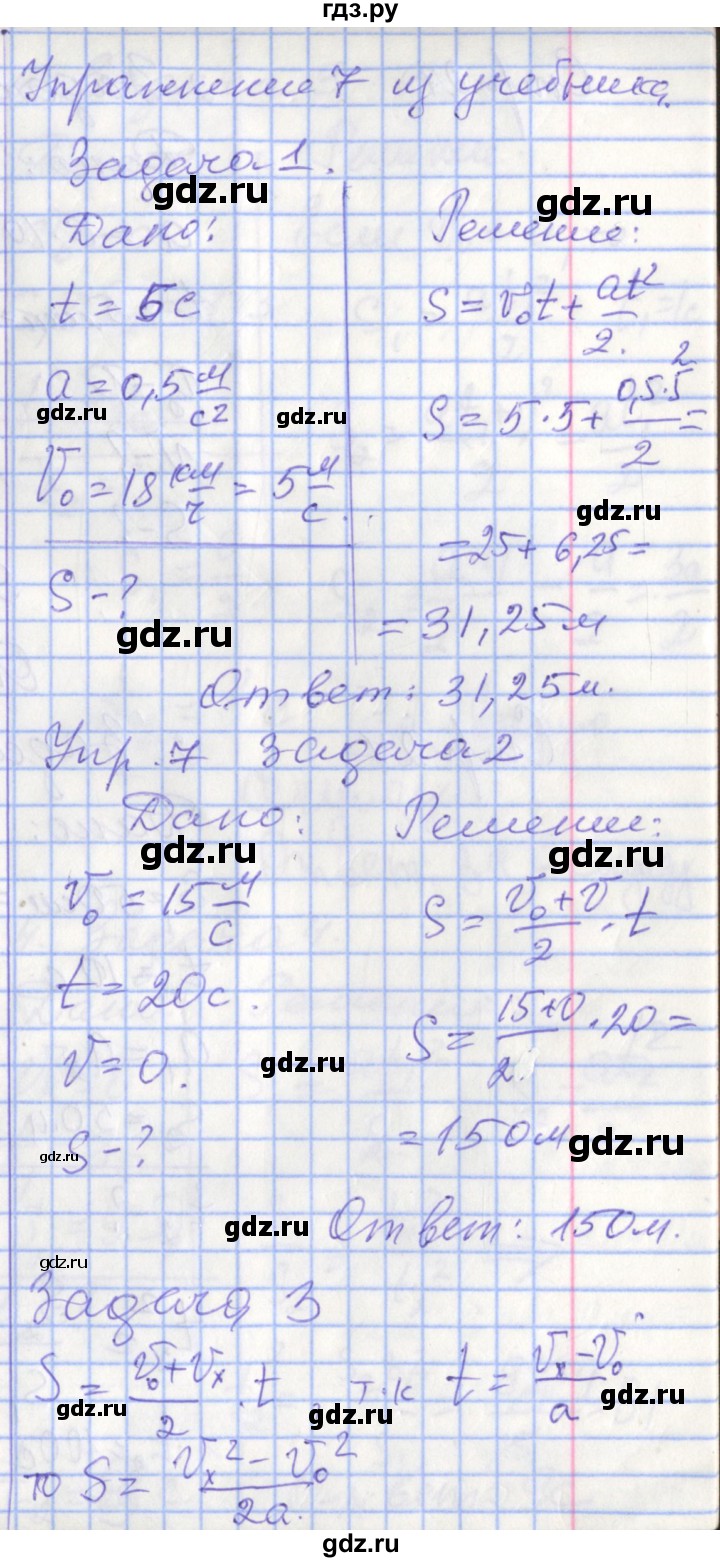 гдз.ру
Упражнение 7 из учебника.
Задача 1.
gdz.ru
gdz.ru
Дано: Решение:
t = 5с S = v₀t + at²/2.
a = 0,5 м/с² S = 5·5 + 0,5·5²/2 =
gdz.ru gdz.ru
V₀ = 18 км/ч = 5 м/с.
gdz.ru
= 25 + 6,25 =
S - ?
gdz.ru
= 31,25м
Ответ: 31,25м.
Упр. 7 Задача 2
Дано: Решение:
gdz.ru gdz.ru
v₀ = 15 м/с S = v₀+v/2 · t
t = 20с. S = 15+0/2 · 20 =
v = 0. gdz.ru
S - ? = 150м
gdz.ru gdz.ru
gdz.ru Ответ: 150м.
gdz.ru
Задача 3
S = v₀+vₓ/2 · t т.к t = vₓ-v₀/a
gdz.ru gdz.ru gdz.ru
то S = vₓ²-v₀²/2a.
gdz.ru